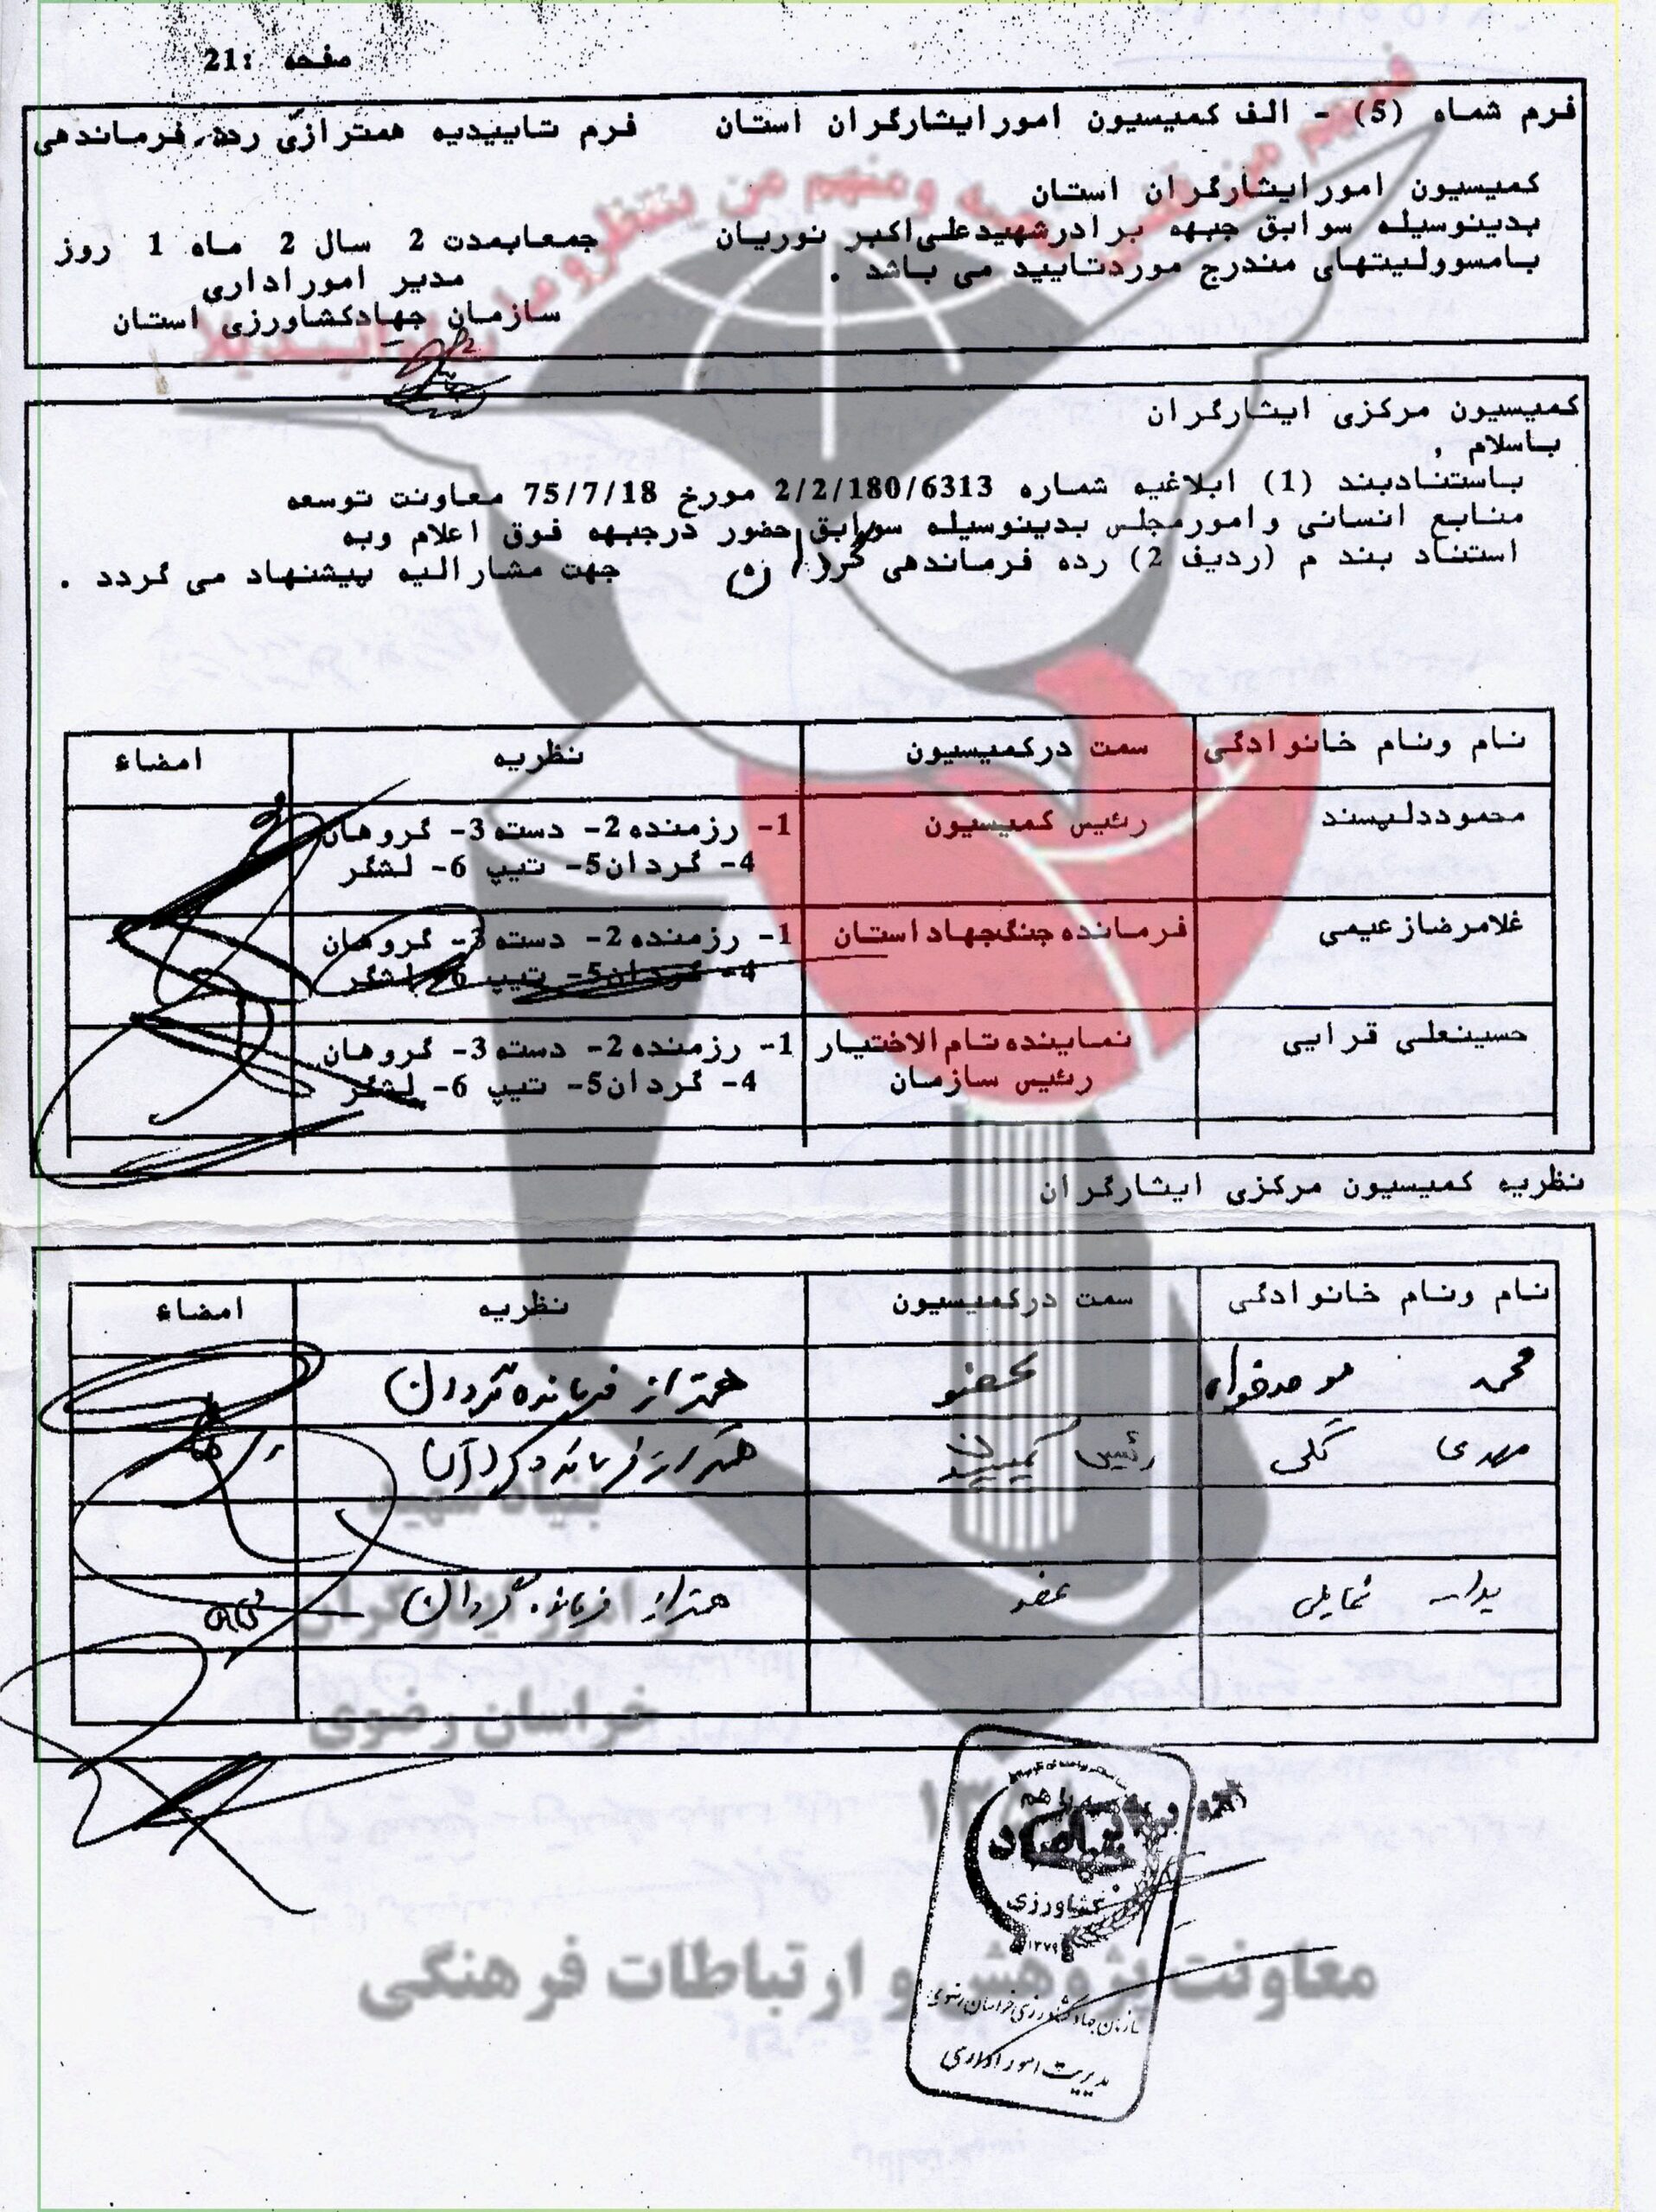 صفحه :21
فرم شماه (5) - الف کمیسیون امورایثارگران استان فرم تاییدیه همترازی رده فرماندهی
کمیسیون امورایثارگران استان
بدینوسیله سوابق جبهه برادرشهیدعلی‌اکبر نوریان جمعابمدت 2 سال 2 ماه 1 روز
بامسوولیتهای مندرج موردتایید می باشد .
مدیر اموراداری
سازمان جهادکشاورزی استان
کمیسیون مرکزی ایثارگران
باسلام ,
باستنادبند (1) ابلاغیه شماره 2/2/180/6313 مورخ 75/7/18 معاونت توسعه
منابع انسانی وامورمجلس بدینوسیله سوابق حضور درجبهه فوق اعلام وبه
استناد بند م (ردیف 2) رده فرماندهی گردان جهت مشارالیه پیشنهاد می گردد .
نام ونام خانوادگی سمت درکمیسیون نظریه امضاء
محموددلپسند رئیس کمیسیون 1- رزمنده 2- دسته 3- گروهان
4- گردان 5- تیپ 6- لشگر
غلامرضازعیمی فرمانده جنگجهاداستان 1- رزمنده 2- دسته 3- گروهان
4- گردان 5- تیپ 6- لشگر
حسینعلی قرایی نماینده تام الاختیار 1- رزمنده 2- دسته 3- گروهان
رئیس سازمان 4- گردان 5- تیپ 6- لشگر
نظریه کمیسیون مرکزی ایثارگران
نام ونام خانوادگی سمت درکمیسیون نظریه امضاء
محمد موحدخواه عضو همتراز فرمانده گردان
مهدی گلی رئیس کمیسیون همتراز فرمانده گردان
عضو همتراز فرمانده گردان
بنیاد شهید
و امور ایثارگران
خراسان رضوی
جهاد
کشاورزی
۱۳۷۹
معاونت پژوهش و ارتباطات فرهنگی
سازمان جهاد کشاورزی خراسان رضوی
مدیریت امور اداری